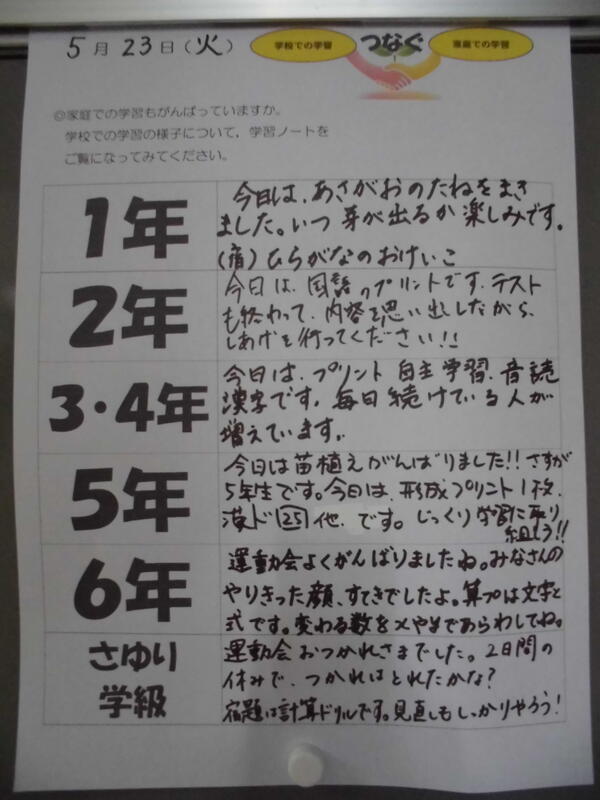 5月23日(火)
学校での学習
つなぐ
家庭での学習
◎家庭での学習もがんばっていますか。
学校での学習の様子について，学習ノートを
ご覧になってみてください。
1年
今日は、あさがおのたねをまき
ました。いつ芽が出るか楽しみです。
(宿)ひらがなのおけいこ
2年
今日は、国語のプリントです。テスト
も終わって、内容を思い出しながら、
しあげを行ってください!!
3・4年
今日は、プリント 自主学習、音読
漢字です。毎日続けている人が
増えています。
5年
今日は苗植えがんばりました!!さすが
5年生です。今日は、形成プリント1枚、
漢ド25他、です。じっくり学習に取り
組もう!!
6年
運動会よくがんばりましたね。みなさんの
やりきった顔、すてきでしたよ。算プは文字と
式です。変わる数をxやyであらわしてね。
さゆり
学級
運動会おつかれさまでした。2日間の
休みで、つかれはとれたかな?
宿題は計算ドリルです。見直しもしっかりやろう!